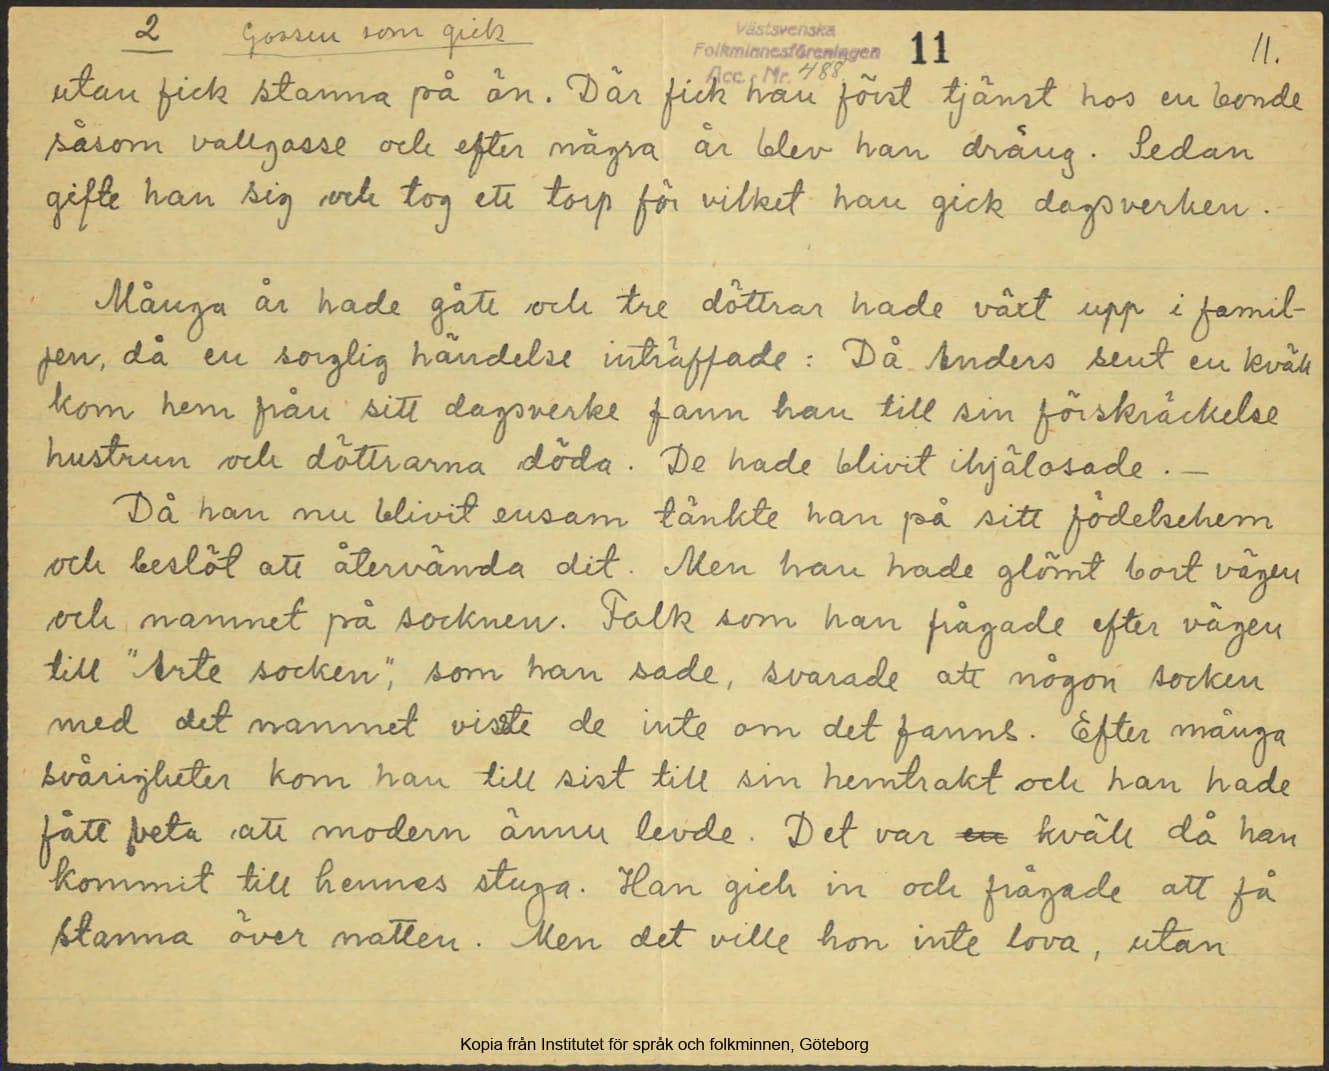 2 Gossen som gick
Västsvenska
Folkminnesföreningen
Acc. Nr. 488
11
11.
utan fick stanna på ön. Där fick han först tjänst hos en bonde
såsom vallgosse och efter några år blev han dräng. Sedan
gifte han sig och tog ett torp för vilket han gick dagsverken.
Många år hade gått och tre döttrar hade växt upp i famil-
jen, då en sorglig händelse inträffade: Då Anders sent en kväll
kom hem från sitt dagsverke fann han till sin förskräckelse
hustrun och döttrarna döda. De hade blivit ihjälosade. —
Då han nu blivit ensam tänkte han på sitt födelsehem
och beslöt att återvända dit. Men han hade glömt bort vägen
och namnet på socknen. Folk som han frågade efter vägen
till "Arte socken", som han sade, svarade att någon socken
med det namnet visste de inte om det fanns. Efter många
svårigheter kom han till sist till sin hemtrakt och han hade
fått veta att modern ännu levde. Det var en kväll då han
kommit till hennes stuga. Han gick in och frågade att få
stanna över natten. Men det ville hon inte lova, utan
Kopia från Institutet för språk och folkminnen, Göteborg